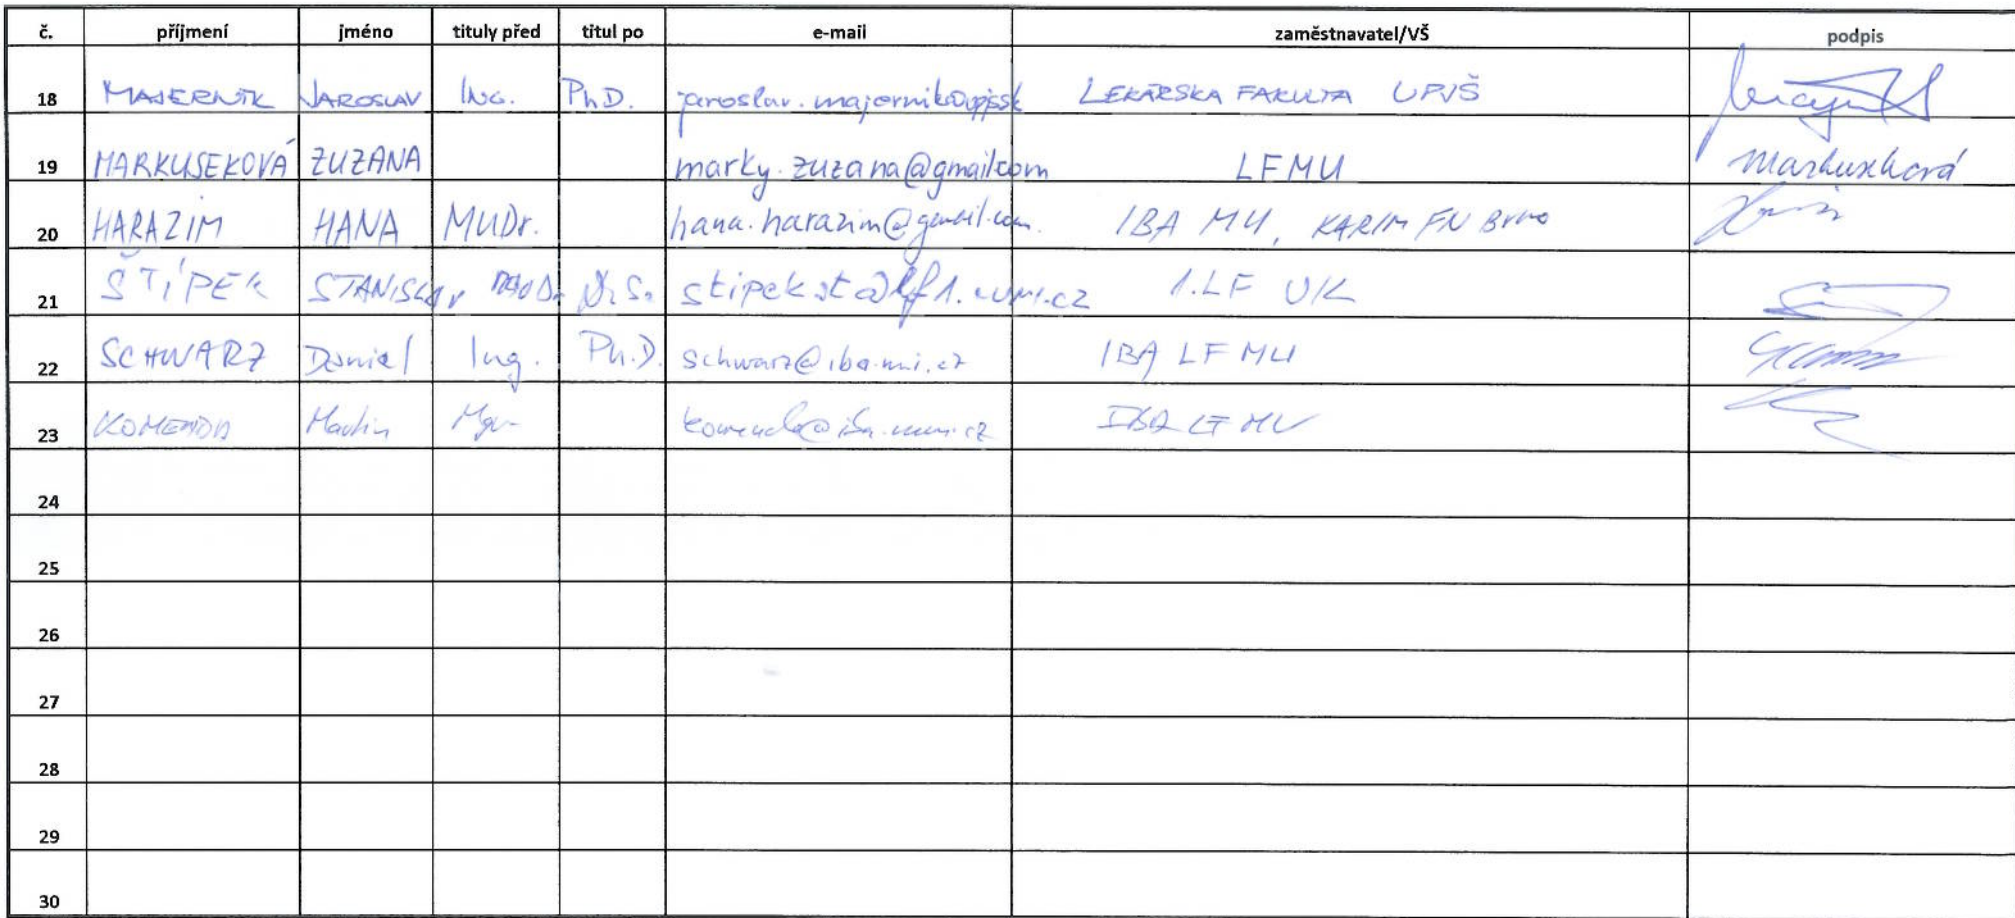 č. příjmení jméno tituly před titul po e-mail zaměstnavatel/VŠ podpis
18 MAJERNÍK JAROSLAV ING. PhD. jaroslav.majernik@upjs.sk LEKÁRSKA FAKULTA UPJŠ
19 MARKUSEKOVÁ ZUZANA marky.zuzana@gmail.com LFMU Markuseková
20 HARAZIM HANA MUDr. hana.harazim@gmail.com IBA MU, KARIM FN Brno
21 ŠTÍPEK STANISLAV DrSc. stipek.st@lf1.cuni.cz 1.LF UK
22 SCHWARZ Daniel Ing. Ph.D. schwarz@iba.muni.cz IBA LF MU
23 KOMENDA Martin Mgr. komenda@iba.muni.cz IBA LF MU
24
25
26
27
28
29
30